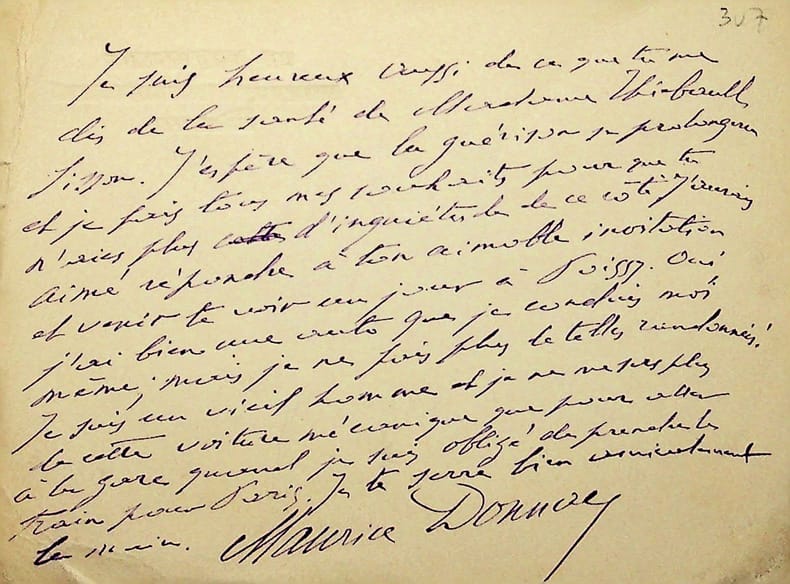 307
Je suis heureux aussi de ce que tu me
dis de la santé de Madame Thiébault
Sisson. J'espère que la guérison se prolongera
et je fais tous mes souhaits pour que tu
n'aies plus cette d'inquiétude de ce côté. J'aurais
aimé répondre à ton aimable invitation
et venir te voir un jour à Poissy. Oui
j'ai bien une auto que je conduis moi
même; mais je ne fais plus de telles randonnées!
Je suis un vieil homme et je ne me sers plus
de cette voiture mécanique que pour aller
à la gare quand je suis obligé de prendre le
train pour Paris. Je te serre bien amicalement
la main. Maurice Donnay